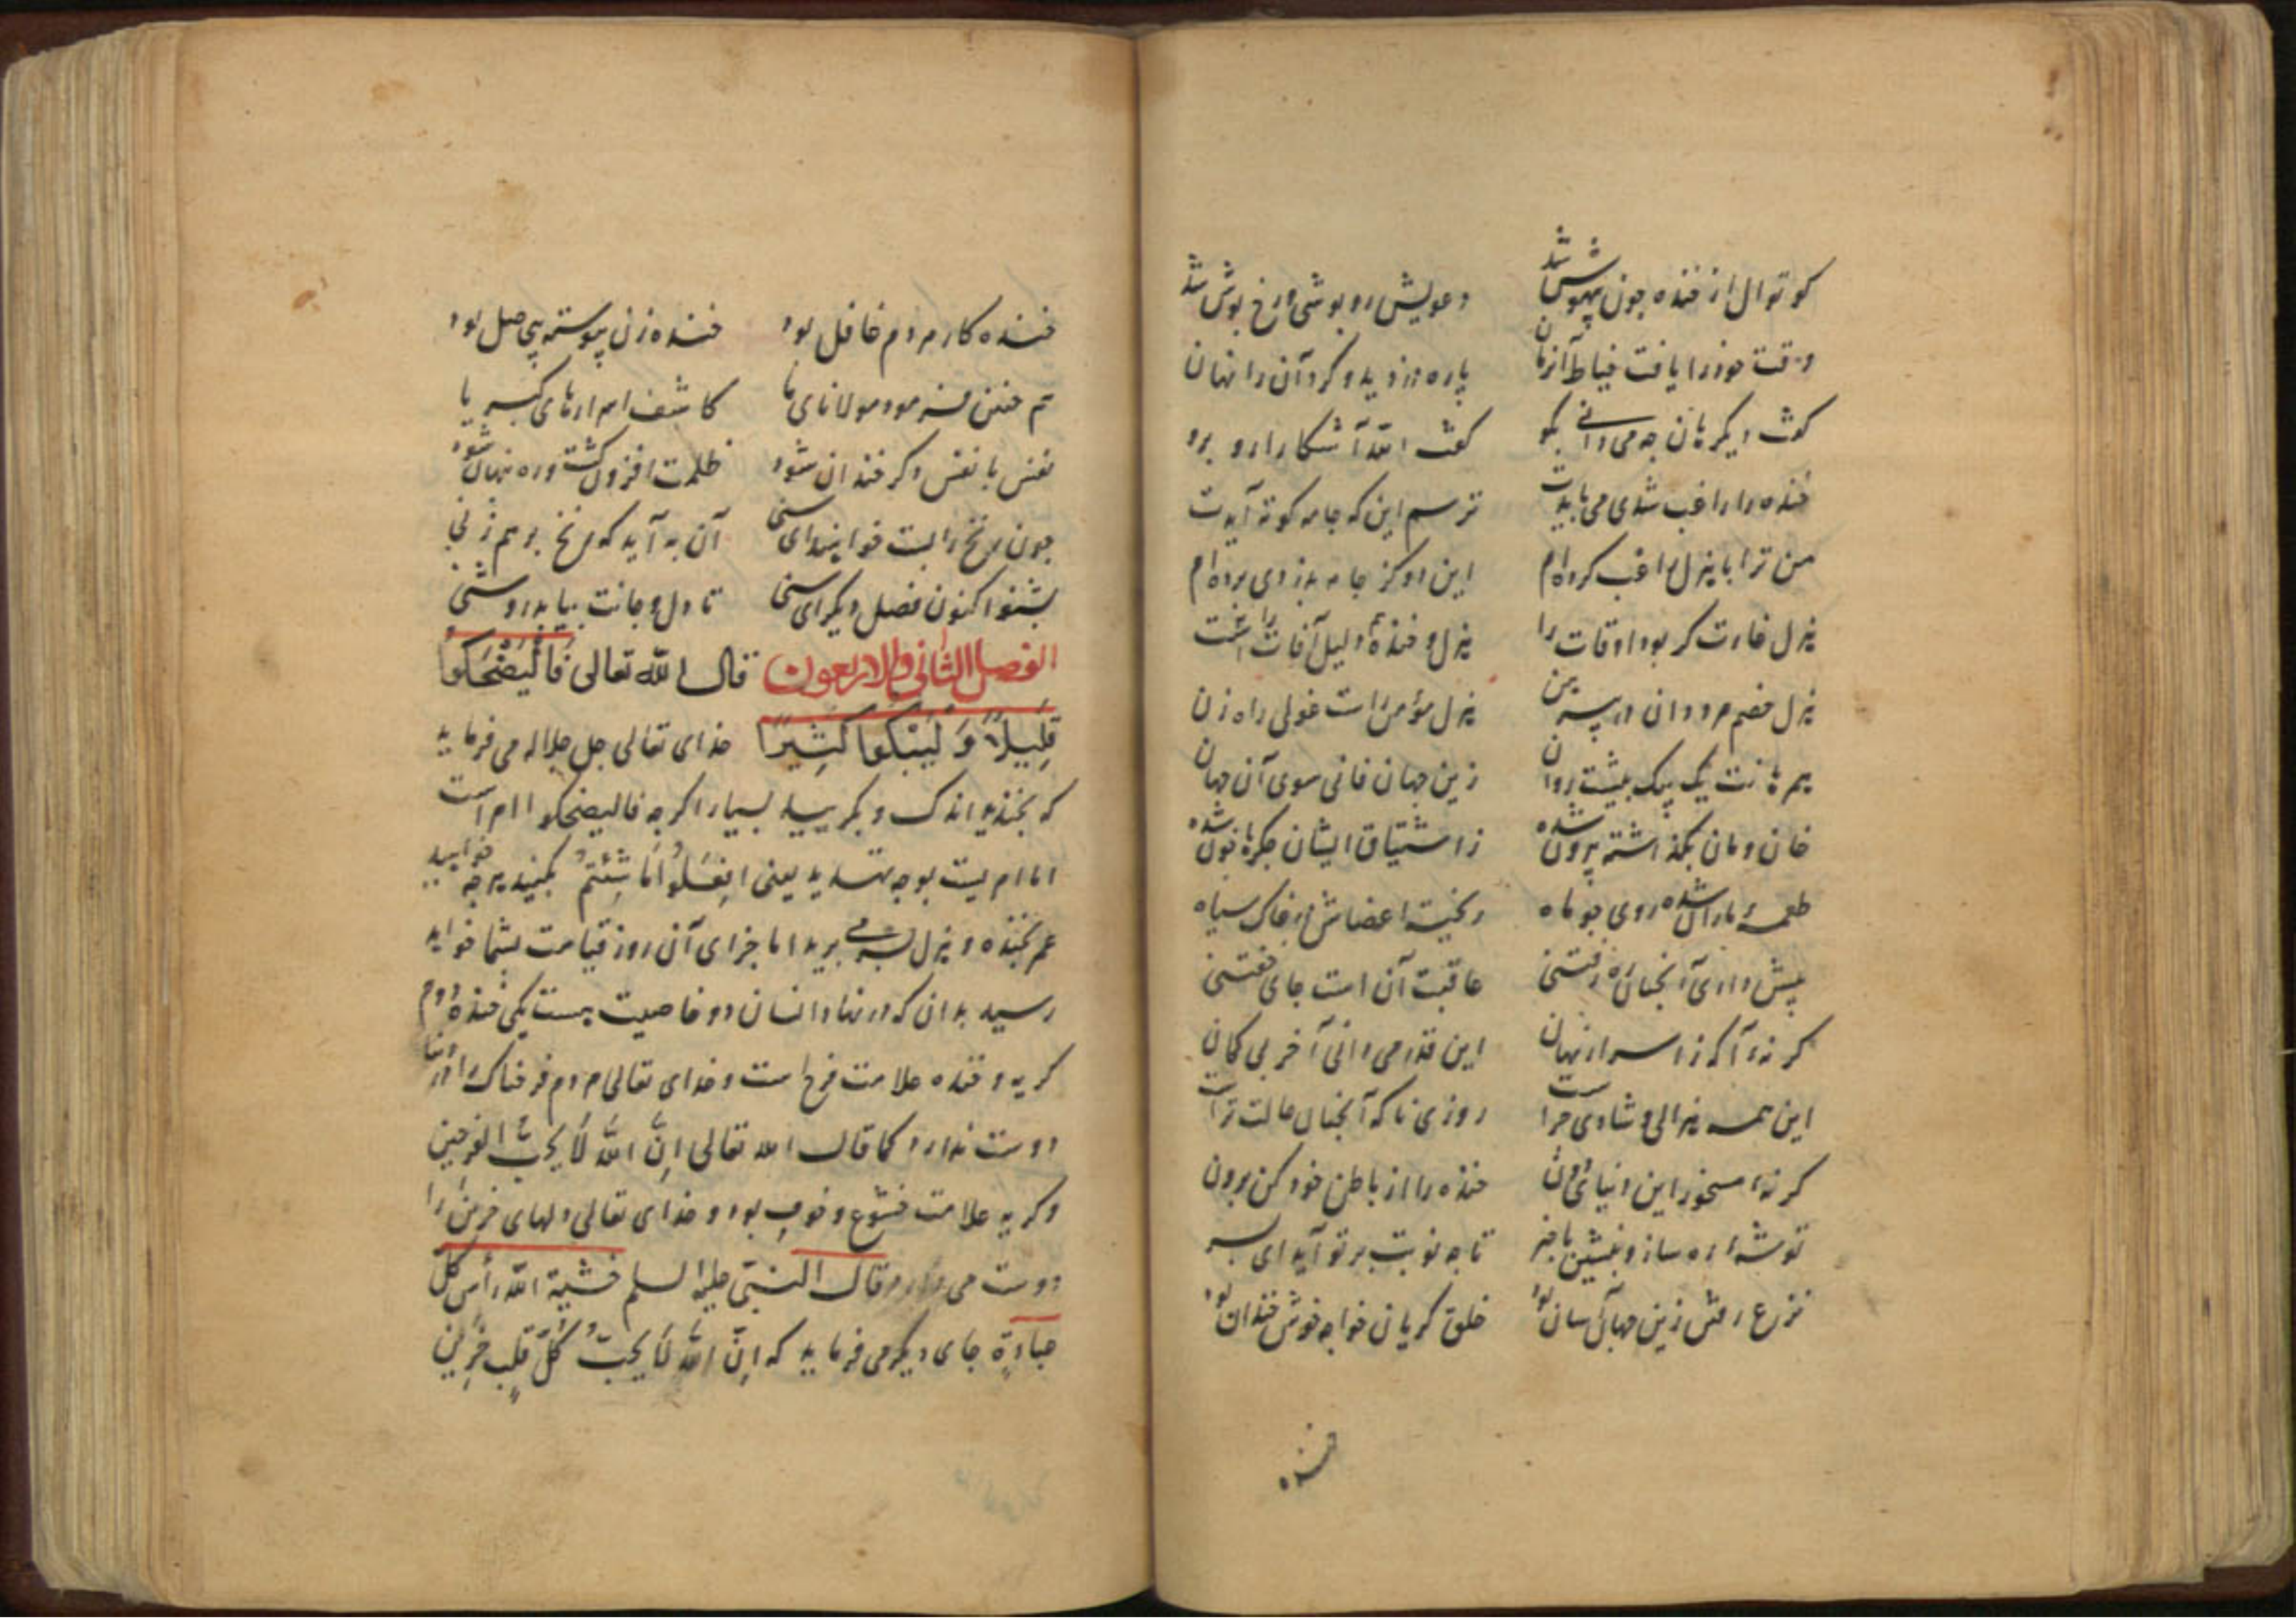 کوتوال از خنده چون بیهوش شد دعویش روپوشی و رخ پوش شد
وقت خود را یافت خیاط آن زمان پاره دزدید و کرد آن را نهان
کفت دیکر هان چه می دانی بکو کفت الله آشکارا رو برو
خنده را راغب شدی می بایدت ترسم این که جامه کوته آیدت
من ترا با هزل راغب کرده ام این دو کز جامه بدزدی برده ام
هزل غارت کر بود اوقات را هزل و خنده دلیل آفات را
هزل خصم مرد دان در پیرهن هزل مؤمن راست غولی راه زن
همرهانت یک بیک پیشت روان زین جهان فانی سوی آن جهان
خان و مان بکذاشته بیرون شده ز اشتیاق ایشان جکرها خون شده
طعمهٔ ماران شده روی چو ماه ریخته اعضاش در خاک سیاه
پیش داری آنچنان ره رفتنی عاقبت آن است جای خفتنی
کر نهٔ آکه ز اسرار نهان این قدر می دانی آخر بی کمان
این همه هزالی و شادی چراست روزی ناکه آنچنان حالت تراست
کر نهٔ مسخور این دنیای دون خنده را از باطن خود کن برون
توشهٔ ره ساز و بنشین با خبر تا چه نوبت بر تو آید ای پسر
نزع رفتن زین جهان آسان بود خلق کریان خواجه خوش خندان بود
خنده
خنده کار مردم غافل بود خنده زن پیوسته بی حاصل بود
هم چنین فرمود مولانای ما کاشف اسرارهای کبریا
نفس با نفس دکر خندان شود ظلمت افزون کشت و ره پنهان شود
چون نخ را بست خواهی ای سنی آن به آید که نخ بر هم زنی
بشنو اکنون فصل دیکر ای سنی تا دل و جانت بیابد روشنی
الفصل الثانی والاربعون قال الله تعالی فَالْیَضْحَکُوا
قَلِیلًا وَ لْیَبْکُوا کَثِیرًا خدای تعالی جل جلاله می فرماید
که بخندید اندک و بکریید بسیار اکرچه فالیضحکوا امر است
اما امریست بوجه تهدید یعنی اِفعَلُوا مَا شِئتُم بکنید هرچه خواهید
عمر بخنده و هزل بسر می برید اما جزای آن روز قیامت بشما خواهد
رسید بدان که در نهاد انسان دو خاصیت هست یکی خنده دوم
کریه و خنده علامت فرح است و خدای تعالی مردم فرحناک را در دنیا
دوست ندارد کما قال الله تعالی اِنَّ اللهَ لَا یُحِبُّ الفرحین
و کریه علامت خشوع و خوف بود و خدای تعالی دلهای حزین را
دوست می دارد قال النبی علیه السلم خشیة الله رأس کل
عبادة جای دیکر می فرماید که اِنَّ اللهَ لَا یُحِبُّ کُلَّ قَلبٍ حَزِین